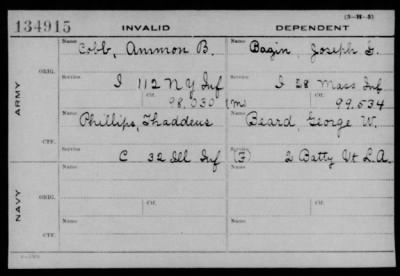 (3-H-3)
134915 INVALID DEPENDENT
Name Cobb, Ammon B. Name Bagin, Joseph L.
ARMY
ORIG. Service I 112 N Y Inf Service I 28 Mass Inf
Ctf. 98,030 (m) Ctf. 99.534
Name Phillips, Thaddeus Name Beard, George W.
CTF. Service C 32 Ill Inf (F) Service 2 Batty Vt L.A.
NAVY
Name Name
ORIG. Service Ctf. Service Ctf.
Name Name
CTF. Service Service